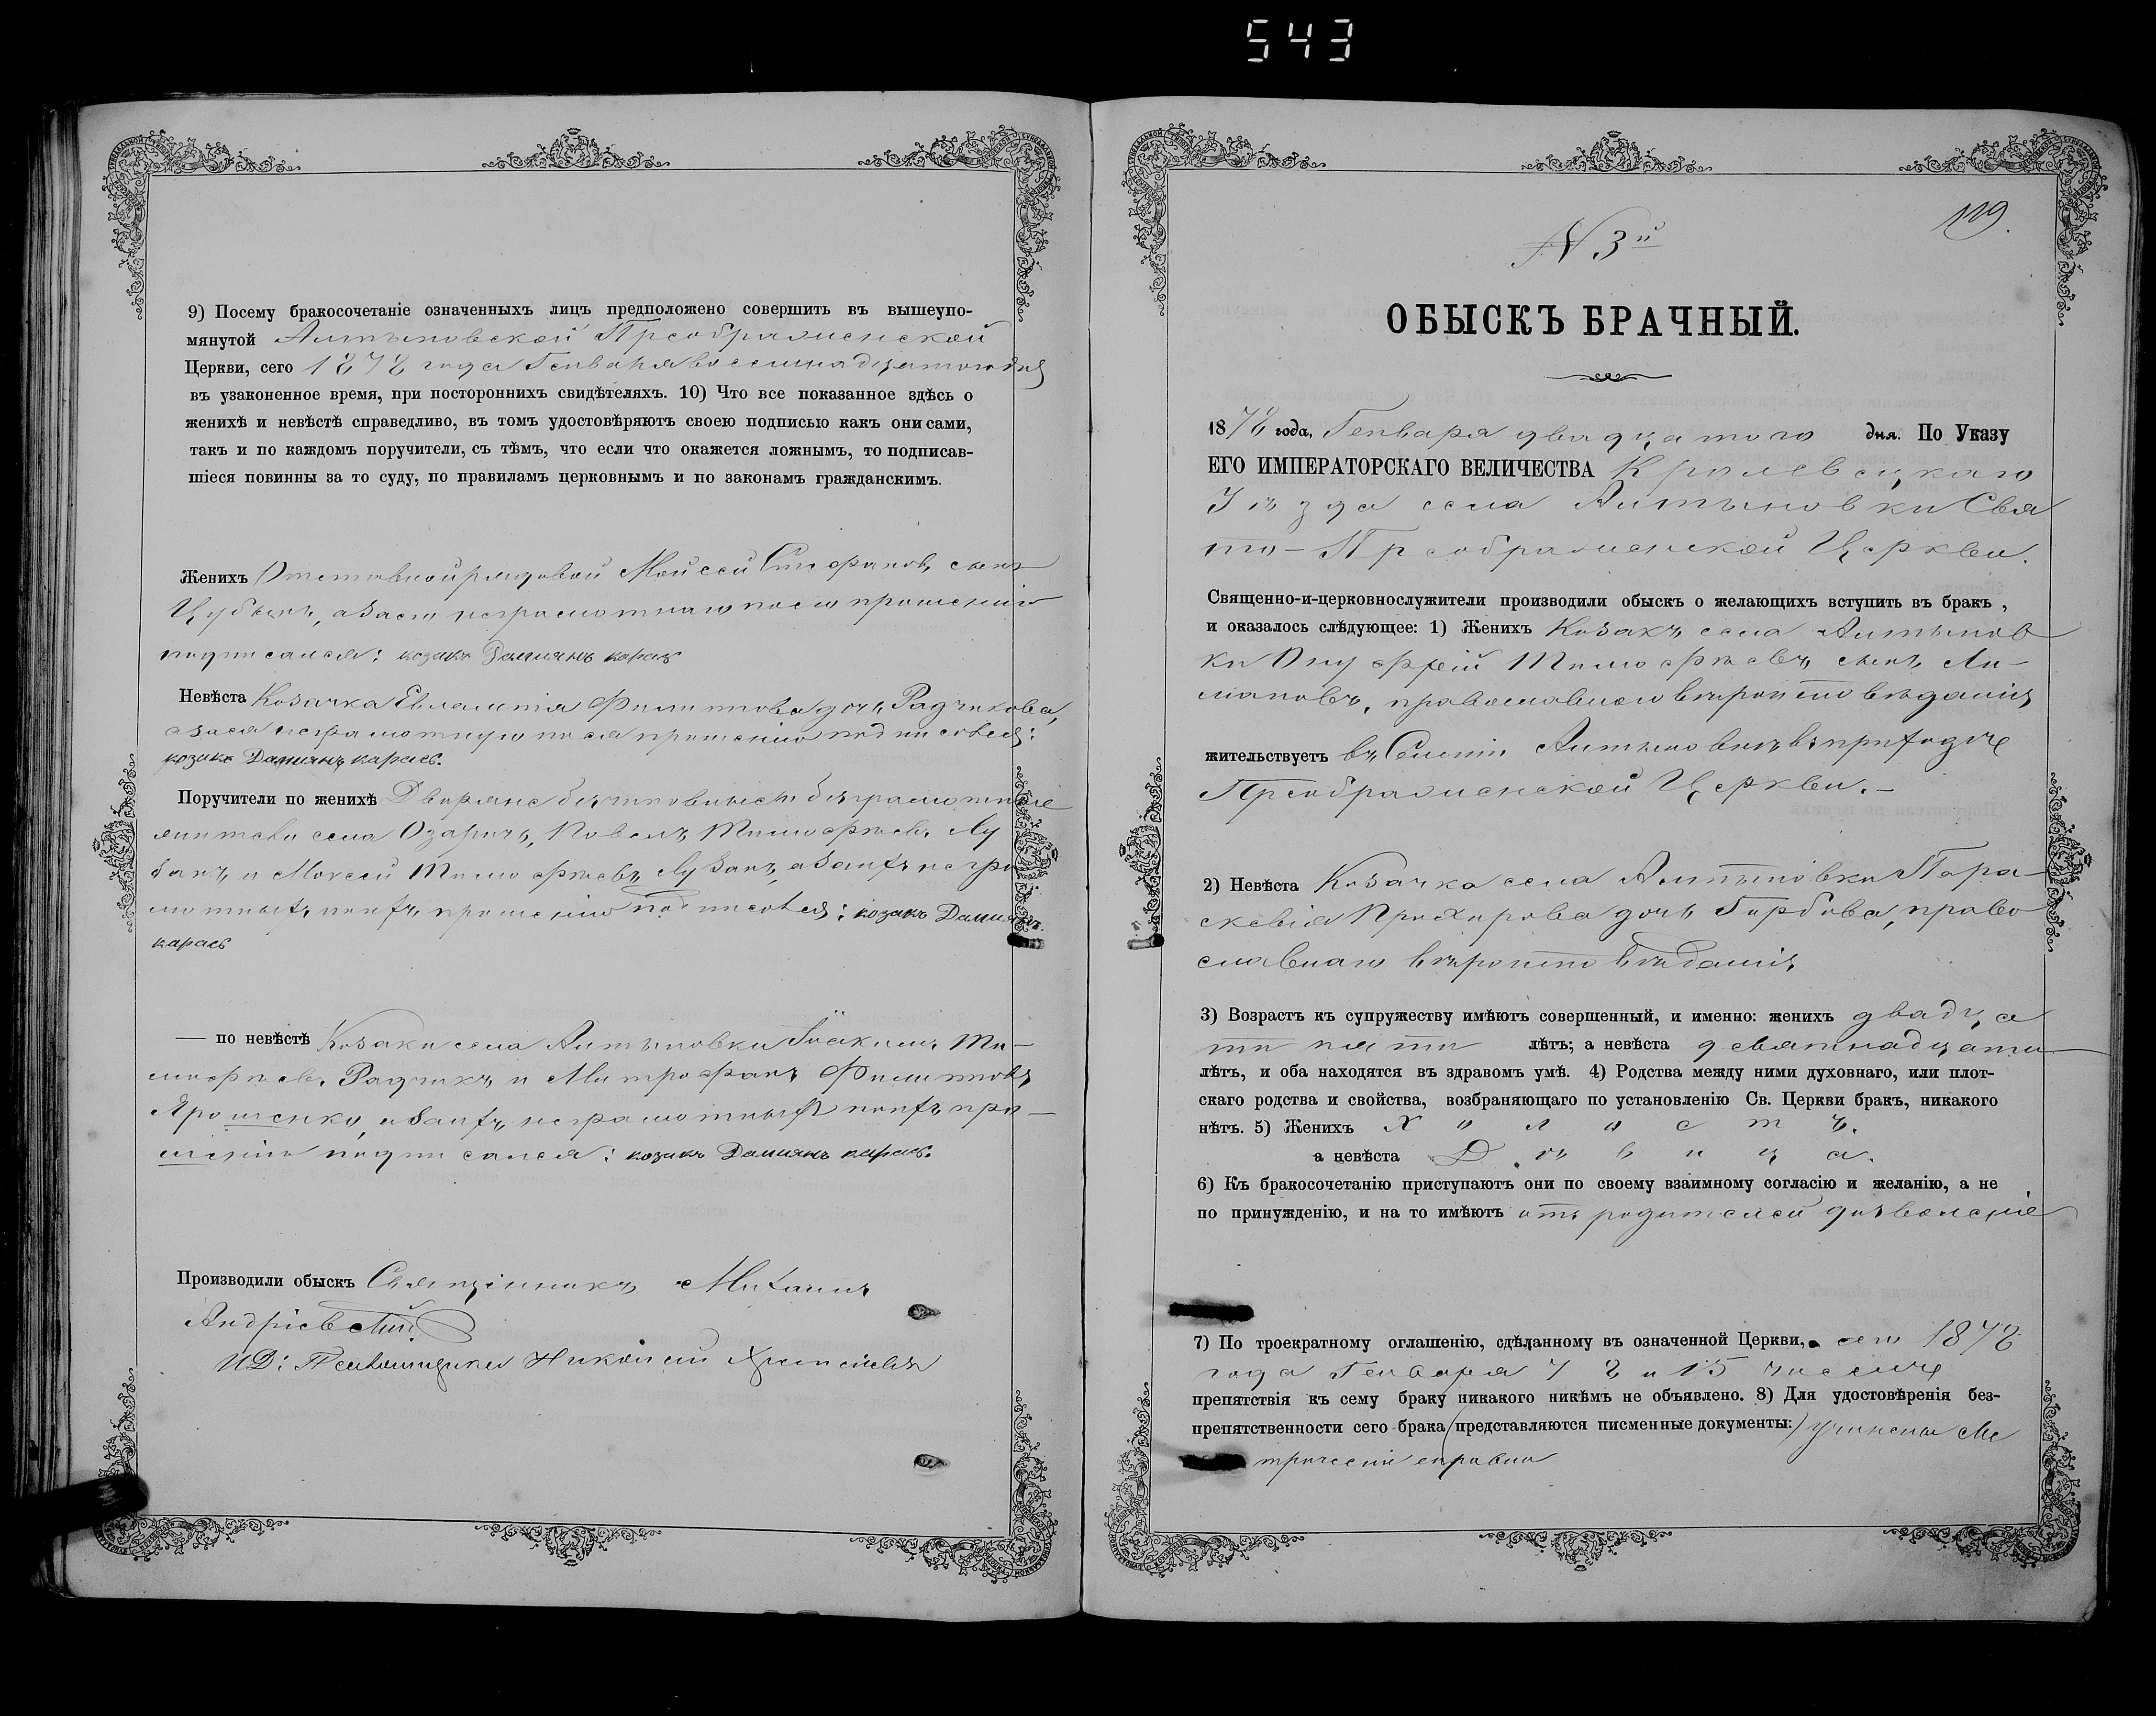 543
9) Посему бракосочетаніе означенныхъ лицъ предположено совершить въ вышеупо-
мянутой Алтыновской Преображенской
Церкви, сего 1878 года Генваря восемнадцатого дня
въ узаконенное время, при постороннихъ свидѣтеляхъ. 10) Что все показанное здѣсь о
женихѣ и невѣстѣ справедливо, въ томъ удостовѣряютъ своею подписью какъ они сами,
такъ и по каждомъ поручители, съ тѣмъ, что если что окажется ложнымъ, то подписав-
шіеся повинны за то суду, по правиламъ церковнымъ и по законамъ гражданскимъ.
Женихъ Отставной рядовой Мойсей Стефановъ сынъ
а за его неграмотнаго по его прошенію
подписался: козакъ Даміянъ карась
Невѣста Козачка Евлампія Филиппова дочь Радчикова,
а за ея неграмотную по ея прошенію подписовся:
козакъ Даміянъ карась.
Поручители по женихѣ Дворяне
села Озаричъ, Повелъ Тимофѣевъ Лу
занъ и Мойсей Тимофѣевъ Лузанъ, а за ихъ негра
мотныхъ по ихъ прошенію подписовся: козакъ Даміянъ
карась
— по невѣстѣ Козаки села Алтыновки Іоакимъ Ти-
мофѣевъ Радчикъ и Митрофанъ Филиповъ
Ярошенко, а за ихъ неграмотныхъ по ихъ про-
шенію подписался: козакъ Даміянъ карась.
Производили обыскъ Священникъ Михаилъ
Андріевскій
И.Д: Псаломщика Николай
N 3й
119.
ОБЫСКЪ БРАЧНЫЙ.
1878 года, Генваря двадцатого дня. По Указу
ЕГО ИМПЕРАТОРСКАГО ВЕЛИЧЕСТВА Кролевецкаго
Уѣзда села Алтыновки Свя
то-Преображенской Церкви.
Священно-и-церковнослужители производили обыскъ о желающихъ вступить въ бракъ ,
и оказалось слѣдующее: 1) Женихъ Козакъ села Алтынов
ки Онуфрій Тимофѣевъ сынъ Ли-
мановъ, православного вѣроисповѣданія
жительствуетъ въ Селѣ Алтыновкѣ въ приходѣ
Преображенской Церкви.-
2) Невѣста Козачка села Алтыновки Пара-
скевія Прохорова дочь Горбова, право
славнаго вѣроисповѣданія
3) Возрастъ къ супружеству имѣютъ совершенный, и именно: женихъ двадца
ти пяти лѣтъ; а невѣста девятнадцати
лѣтъ, и оба находятся въ здравомъ умѣ. 4) Родства между ними духовнаго, или плот-
скаго родства и свойства, возбраняющаго по установленію Св. Церкви бракъ, никакого
нѣтъ. 5) Женихъ Х о л о с т ъ.
а невѣста Д ѣ в и ц а.
6) Къ бракосочетанію приступаютъ они по своему взаимному согласію и желанію, а не
по принужденію, и на то имѣютъ отъ родителей дозволеніе
7) По троекратному оглашенію, сдѣланному въ означенной Церкви, сего 1878
года Генваря 7 8 и 15 числе
препятствія къ сему браку никакого никѣмъ не объявлено. 8) Для удостовѣренія без-
препятственности сего брака (представляются писменные документы:) учинены Ме
трическіе справки